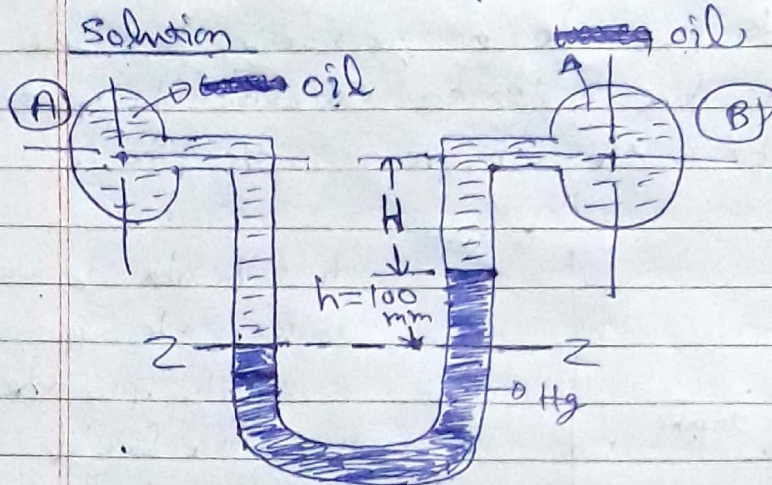 Solution
oil
oil
A
B
H
h=100
mm
Z Z
Hg